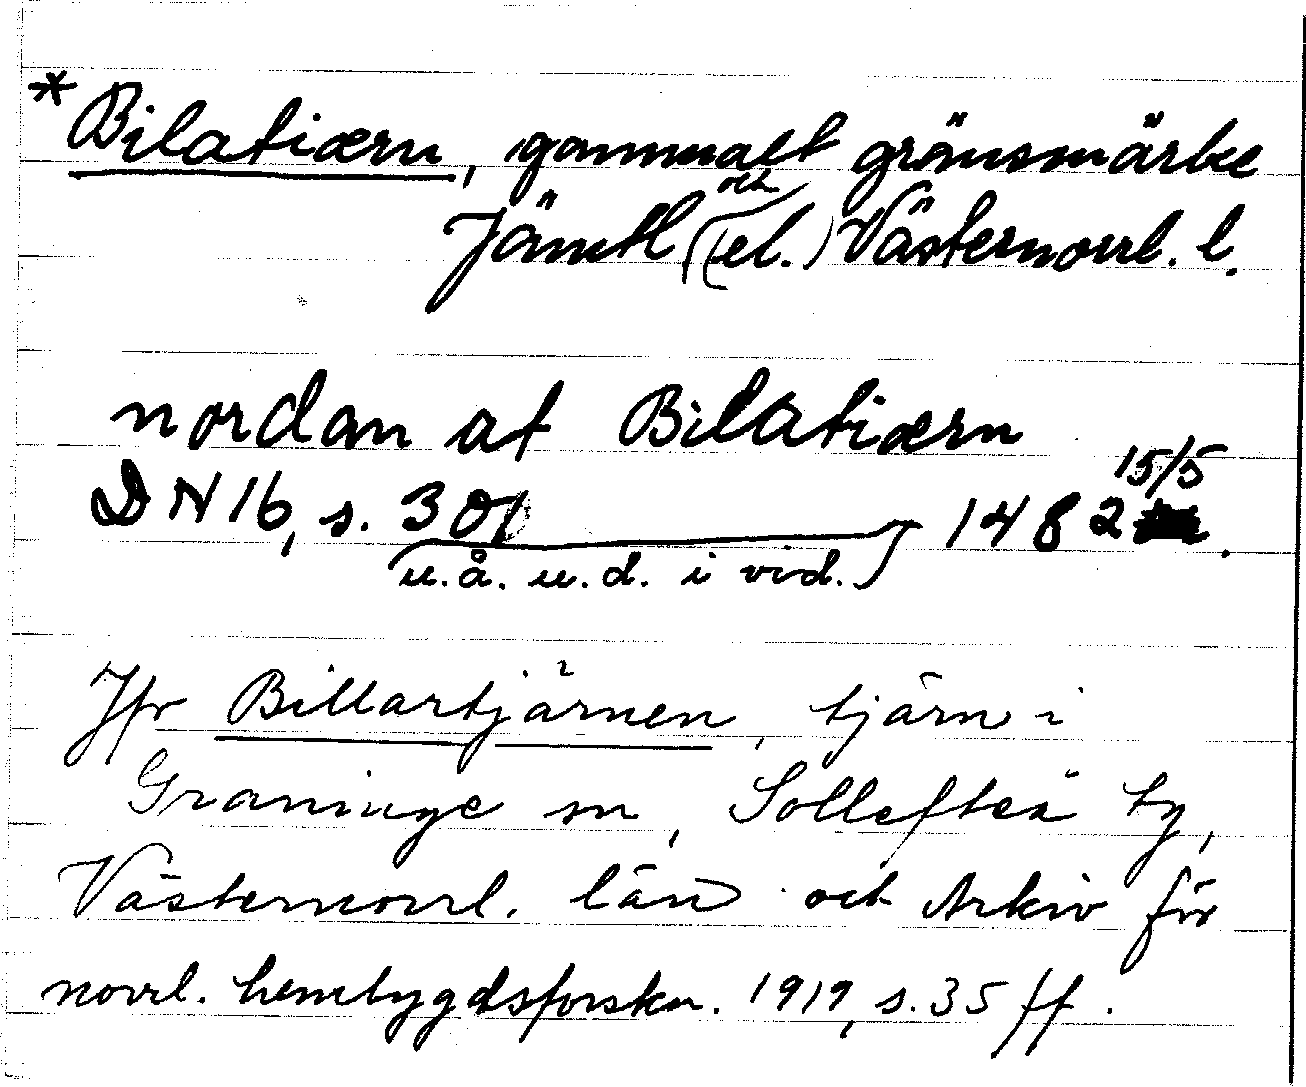 *Bilatiærn, gammalt gränsmärke
och
Jämtl (el.) Västernorrl. l.
nordan at Bilatiærn
15/5
DN 16, s. 301 1482.
u.å. u.d. i vid.
Jfr Billartjärnen, tjärn i
Graninge sn, Sollefteå tg,
Västernorrl. län och Arkiv för
norrl. hembygdsforskn. 1919, s. 35 ff.